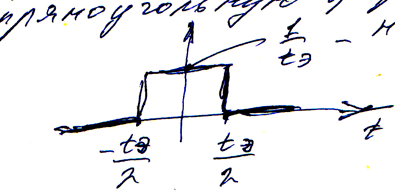 прямоугольную
1/tэ – н
-tэ/2 tэ/2 t